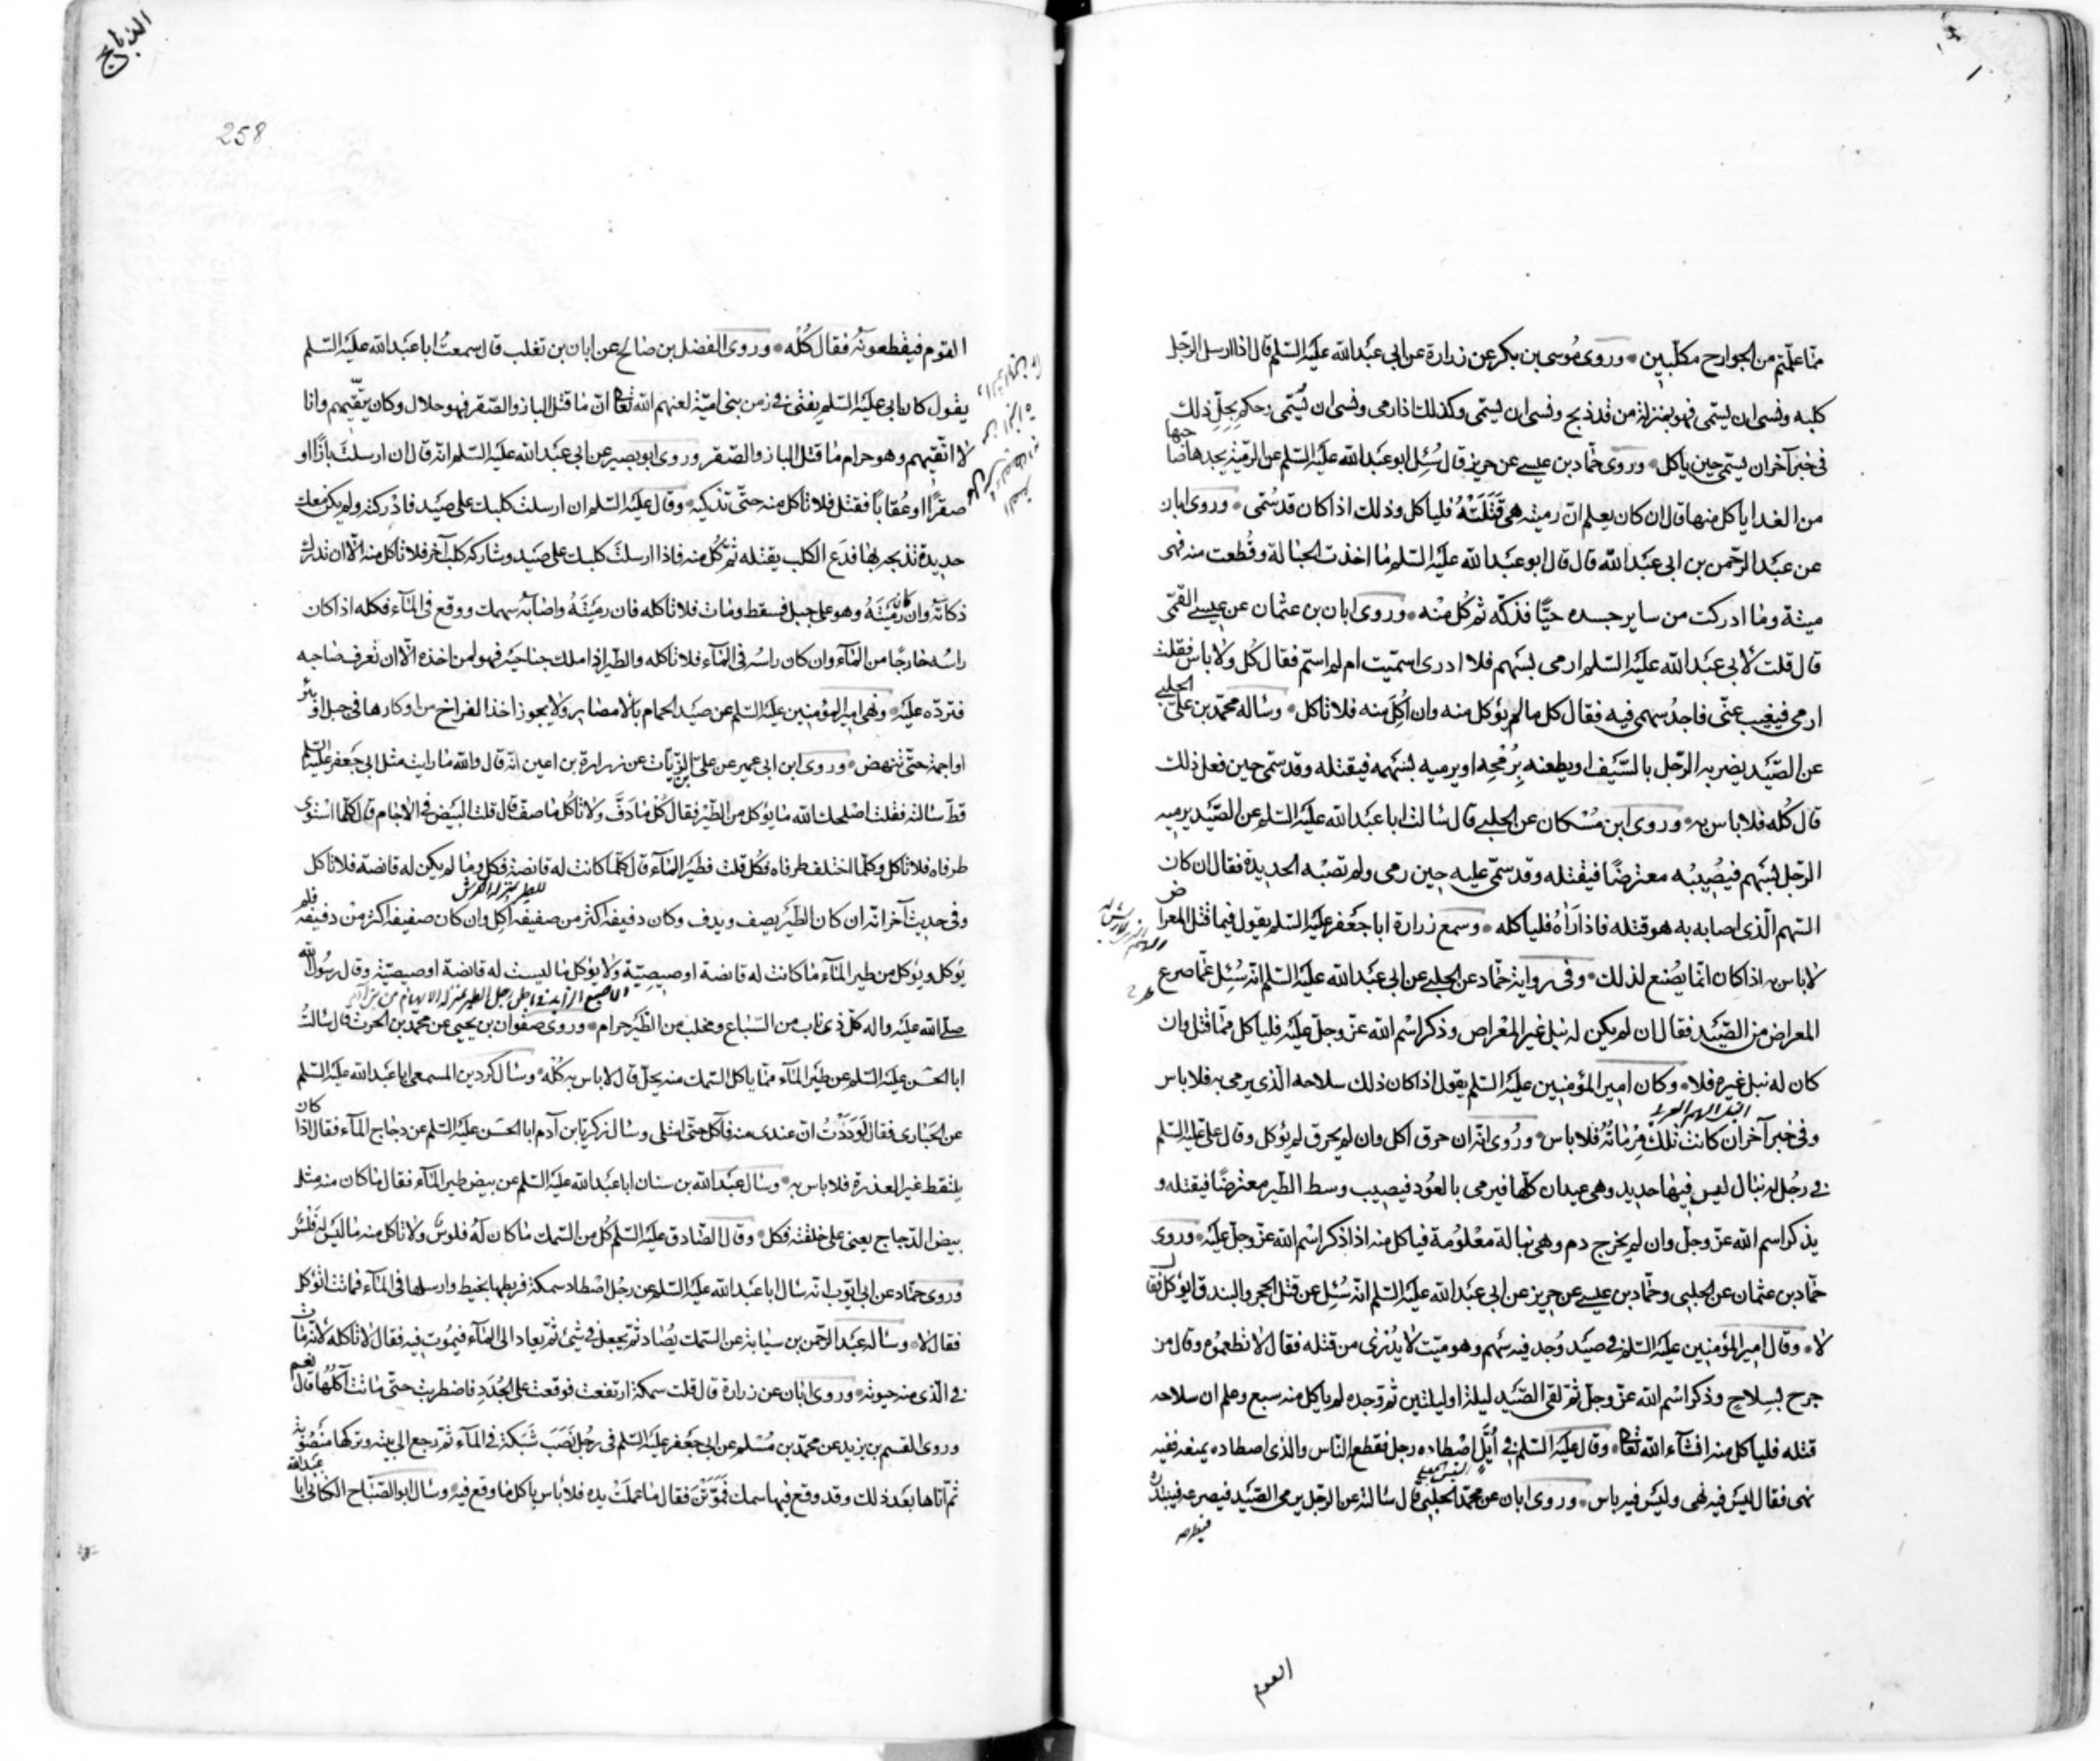 ممّا علّمتم من الجوارح مكلّبين وروى مُوسى بن بكر عن زرارة عن ابى عبَد الله عليَه السّلم قال اذا ارسل الرّجل
كلبه ونسى ان يسمّى فهو بمنزلة من قد ذبح ونسى ان يسمّى وكذلك اذا رمى ونسى ان يُسمّى وحكم بحِلّ ذلك
فى خبر آخر ان يسمّى حين ياكل وروى حمّاد بن عيسى عن حريز قال سُئِل ابو عبَد الله عليَه السّلم عن الرّميّة يجدها صاحبها
من الغد اياكل منها قال ان كان يعلم انّ رميته هى قَتَلَتْهُ فليأكل وذلك اذا كان قد سُمّى وروى ابان
عن عبَد الرّحمن بن ابى عبَد الله قال قال ابو عبَد الله عليَه السّلم ما اخذت الحبالة وقُطعت منه فهى
ميتة وما ادركت من ساير جسده حيًّا فذكّه ثم كُل منْه وروى ابان بن عثمان عن عيسى القمّى
قال قلت لابى عبَد الله عليَه السّلم ارمى بسَهم فلا ادرى اسمّيت ام لم اسمّ فقال كُل ولا باس فقلت
ارمى فيغيب عنّى فاجدُ سهمى فيه فقال كل ما لم يؤكل منه وان اُكِلَ منه فلا تاكل وساله محمّد بن علىّ الحلبى
عن الصَّيَد يضربه الرّجل بالسَّيَف او يطعنه بِرُمْحِه او يرميه بسَهمه فيقتله وقد سمّى حين فعل ذلك
قال كُله فلا باس به وروى ابن مُسْكان عن الحلبى قال سالت ابا عبَد الله عليَه السّلم عن الصَّيَد يرميه
الرّجل بسَهم فيُصِيبُه معترضًا فيقتله وقد سمّى عليه حين رمى ولم تصبْه الحديدة فقال ان كان
السّهم الّذى اصابه به هو قتله فاذا رَاٰهُ فليأكله وسمع زرارة ابا جعَفر عليَه السّلم يقول فيما قتل المعراض
لا باس به اذا كان انّما يُصْنع لذلك وفى رواية حمّاد عن الحلبى عن ابى عبَد الله عليَه السّلم انّه سُئِل عمّا صرع
المعراض من الصَّيَد فقال ان لم يكن له نبل غير المعْراض وذكر اسْم الله عزّ وجلّ عليَه فليأكل ممّا قتل وان
كان له نبل غيره فلا وكان امير المؤمنين عليَه السّلم يقول اذا كان ذلك سلاحه الّذى يرمى به فلا باس
وفى خبر آخر ان كانت تلك مِرْمَاتُهُ فلا باس ورُوى انّه ان خرق اكل وان لم يخرق لم يؤكل وقال علىّ عليَه السّلم
فى رجُل له نبال ليس فيها حديد وهى عيدان كلّها فيرمى بالعُود فيصيب وسط الطّير معترضًا فيقتله و
يذكر اسم الله عزّ وجلّ وان لم يخرج دم وهى نبالة معْلُومة فياكل منه اذا ذكر اسْم الله عزّ وجلّ عليَه وروى
حمّاد بن عثمان عن الحلبى وحمّاد بن عيسى عن حريز عن ابى عبَد الله عليَه السّلم انّه سُئِل عن قتل الحجر والبندق ايؤكل فقال
لا وقال امير المؤمنين عليَه السّلم فى صيَد وُجد فيه سَهم وهو ميّت لا يُدْرى من قتله فقال لا تطعمُوه وقال من
جرح بسِلاح وذكر اسْم الله عزّ وجلّ ثمّ لقى الصَّيَد ليلة او ليلتين ثم وجده لم ياكل منه سبع وعلم ان سلاحه
قتله فليأكل منه انشآء الله تعالى وقال عليَه السّلم فى اُيّل اصْطاده رجل فقطعه النّاس والذى اصطاده يمنعه ففيه
نهى فقال ليسَ فيه نهى وليسَ فيه باس وروى ابان عن محمّد الحلبى قال سالته عن الرّجل يرمى الصَّيَد فيصرعه فيبتدره
القوم
الذبايح
258
القوم فيقطعونَهُ فقال كُلْه وروى الفضل بن صالح عن ابان بن تغلب قال سمعتُ ابا عبَد الله عليَه السّلم
يقول كان ابى عليَه السّلم يفتى فى زمن بنى اميّة لعنهم الله تعالى انّ ما قتل الباز والصّقر فهو حلال وكان يتّقيهم وانا
لا اتّقيهم وهو حرام ما قتل الباز والصّقر وروى ابو بصير عن ابى عبَد الله عليَه السّلم انّه قال ان ارسلتَ بازًا او
صقرًا او عُقابًا فقتل فلا تاكل منه حتّى تذكّيه وقال عليَه السّلم ان ارسلت كلبك على صيَد فادْركته ولم يكن معك
حديدة تذبحه بها فدَع الكلب يقتله ثم كُل منه فاذا ارسلتَ كلبك على صيَد وشاركه كلب آخر فلا تاكل منه الّا ان تدرك
ذكاته وان رَمَيْتَهُ وهو على جبل فسقط ومات فلا تاكله فان رميَتَهُ واصابَه سهمك ووقع فى المآء فكله اذا كان
راسُه خارجًا من المآء وان كان راسُه فى المآء فلا تاكله والطّير اذا ملك جناحيَه فهو لمن اخذه الّا ان تعرف صاحبه
فتردّه عليَه ونهى امير المؤمنين عليَه السّلم عن صيَد الحمام بالامصار ولا يجوز اخذ الفراخ من اوكارها فى جبل او بئر
او اجمة حتّى تنهض وروى ابن ابى عمير عن علىّ بن الزّيّات عن زرارة بن اعين انّه قال والله ما رايت مثل ابى جعَفر عليَه السّلم
قطّ سالته فقلت اصْلحك الله ما يؤكل من الطّيْر فقال كُلْ ما دَفَّ ولا تاكُل ما صفّ قال قلت البَيض فى الآجام قال كلّما استوى
طرفاه فلا تاكل وكلّما اختلف طرفاه فكُل قلت فطير المآء قال كلّما كانت له قانصة فكل وما لم يكن له قانصة فلا تاكل
وفى حديث آخر انّه ان كان الطّيَر يصف ويدف وكان دفيفه اكثر من صفيفه اُكِل وان كان صفيفه اكثر من دفيفه فلم
يؤكل ويؤكل من طير المآء ما كانت له قانصة او صيصيّة ولا يؤكل ما ليست له قانصة او صيصيّة وقال رسُول الله
صلّى الله عليَه وآله كلّ ذى ناب من السّباع ومخلب من الطّيَر حرام وروى صفوان بن يحيى عن محمّد بن الحرث قال سالتُ
ابا الحسَن عليَه السّلم عن طيَر المآء ممّا ياكل السّمك منه يحلّ قال لا باس به كُلْه وسال كردين المسمعى ابا عبَد الله عليَه السّلم
عن الحُبَارى فقال لَوَدَدْتُ انّ عندى منه فآكل حتّى امتلى وسال زكريّا بن آدم ابا الحسَن عليَه السّلم عن دجاج المآء فقال اذا كان
يلتقط غير العذرة فلا باس به وسال عبَد الله بن سنان ابا عبَد الله عليَه السّلم عن بيض طير المآء فقال ما كان منه مثل
بيض الدّجاج يعنى على خلقته فكل وقال الصّادق عليَه السّلم كُل من السّمك ما كان لَهُ فلوس ولا تاكل منه ما ليَس له فَلْس
وروى حمّاد عن ابى ايّوب انّه سال ابا عبَد الله عليَه السّلم عن رجُل اصْطاد سمكة فربطها بخيط وارسلها فى المآء فماتت اتؤكل
فقال لا وساله عبَد الرّحمن بن سيابة عن السّمك يُصاد ثمّ يجعل فى شئ ثمّ يعاد الى المآء فيمُوت فيه فقال لا تاكله لانّه مات
فى الّذى منه حيوته وروى ابان عن زرارة قال قلت سمكة ارتفعت فوقعت على الجُدَدِ فاضطربت حتّى ماتت آكلُها قال نعم
وروى القسم بن بريد عن محمّد بن مُسْلم عن ابى جعَفر عليَه السّلم فى رجُل نَصَبَ شَبَكَة فى المآء ثمّ رجع الى بيته وتركها منصُوبة
ثمّ اتاها بعَد ذلك وقد وقع فيها سمك فمَوّتْنَ فقال ما عملَتْ يده فلا باس ياكل ما وقع فيه وسال ابو الصّبّاح الكنانى ابا عبد الله